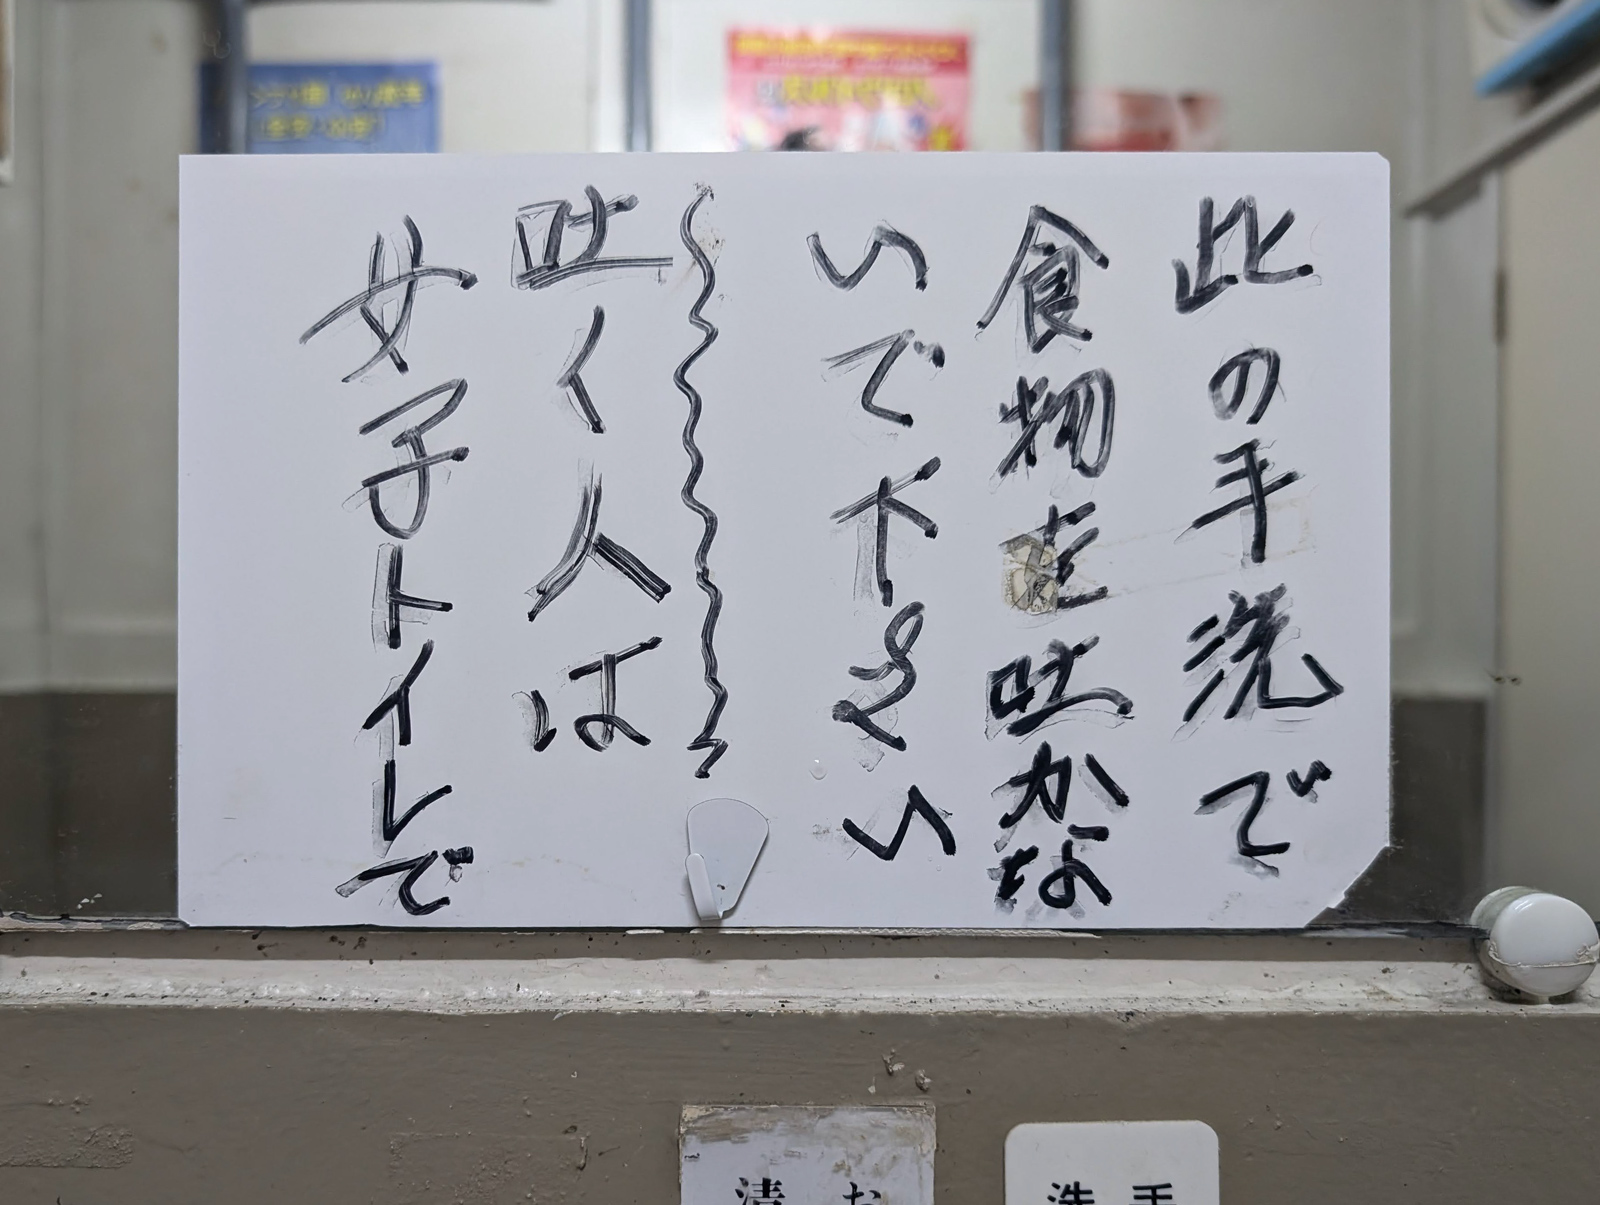 此の手洗で
食物を吐かな
いで下さい
吐く人は
女子トイレで
手洗
お清